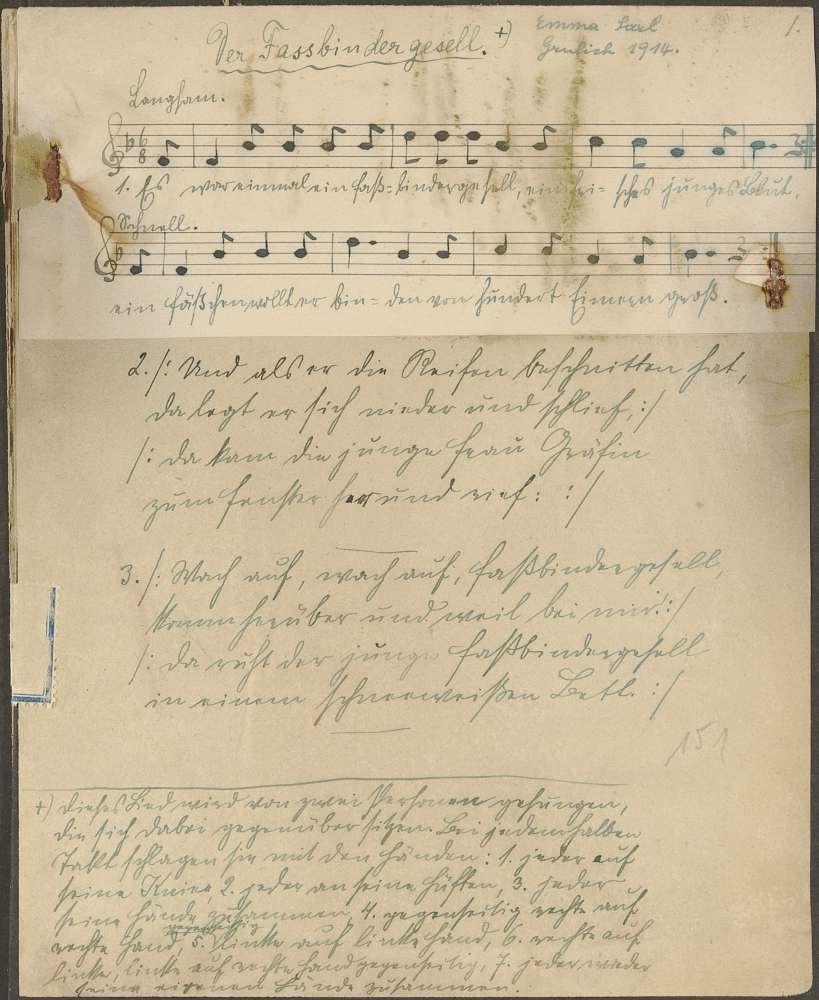 Der Fassbindergesell. +)
Emma Saxl
Grulich 1914.
1.
Langsam.
1. Es war einmal ein Faß=bindergesell, ein fri= sches junges Blut.
Schnell.
ein Fäßchen wollt er bin= den von hundert Eimern groß.
2. /: Und als er die Reifen beschnitten hat,
da legt er sich nieder und schlief, :/
/: da kam die junge Frau Gräfin
zum Fenster her und rief: :/
3. /: Wach auf, wach auf, Faßbindergesell,
komm herüber und weil bei mir! :/
/: da ruht der junge Faßbindergesell
in einem schneeweißen Bett. :/
151
+) Dieses Lied wird von zwei Personen gesungen,
die sich dabei gegenüber sitzen. Bei jedem halben
Takt schlagen sie mit den Händen: 1. jeder auf
seine Kniee, 2. jeder an seine Hüften, 3. jeder
seine Hände zusammen, 4. gegenseitig rechte auf
rechte Hand, 5. gegenseitig linke auf linke Hand, 6. rechte auf
linke, linke auf rechte Hand gegenseitig, 7. jeder wieder
seine eigenen Hände zusammen.